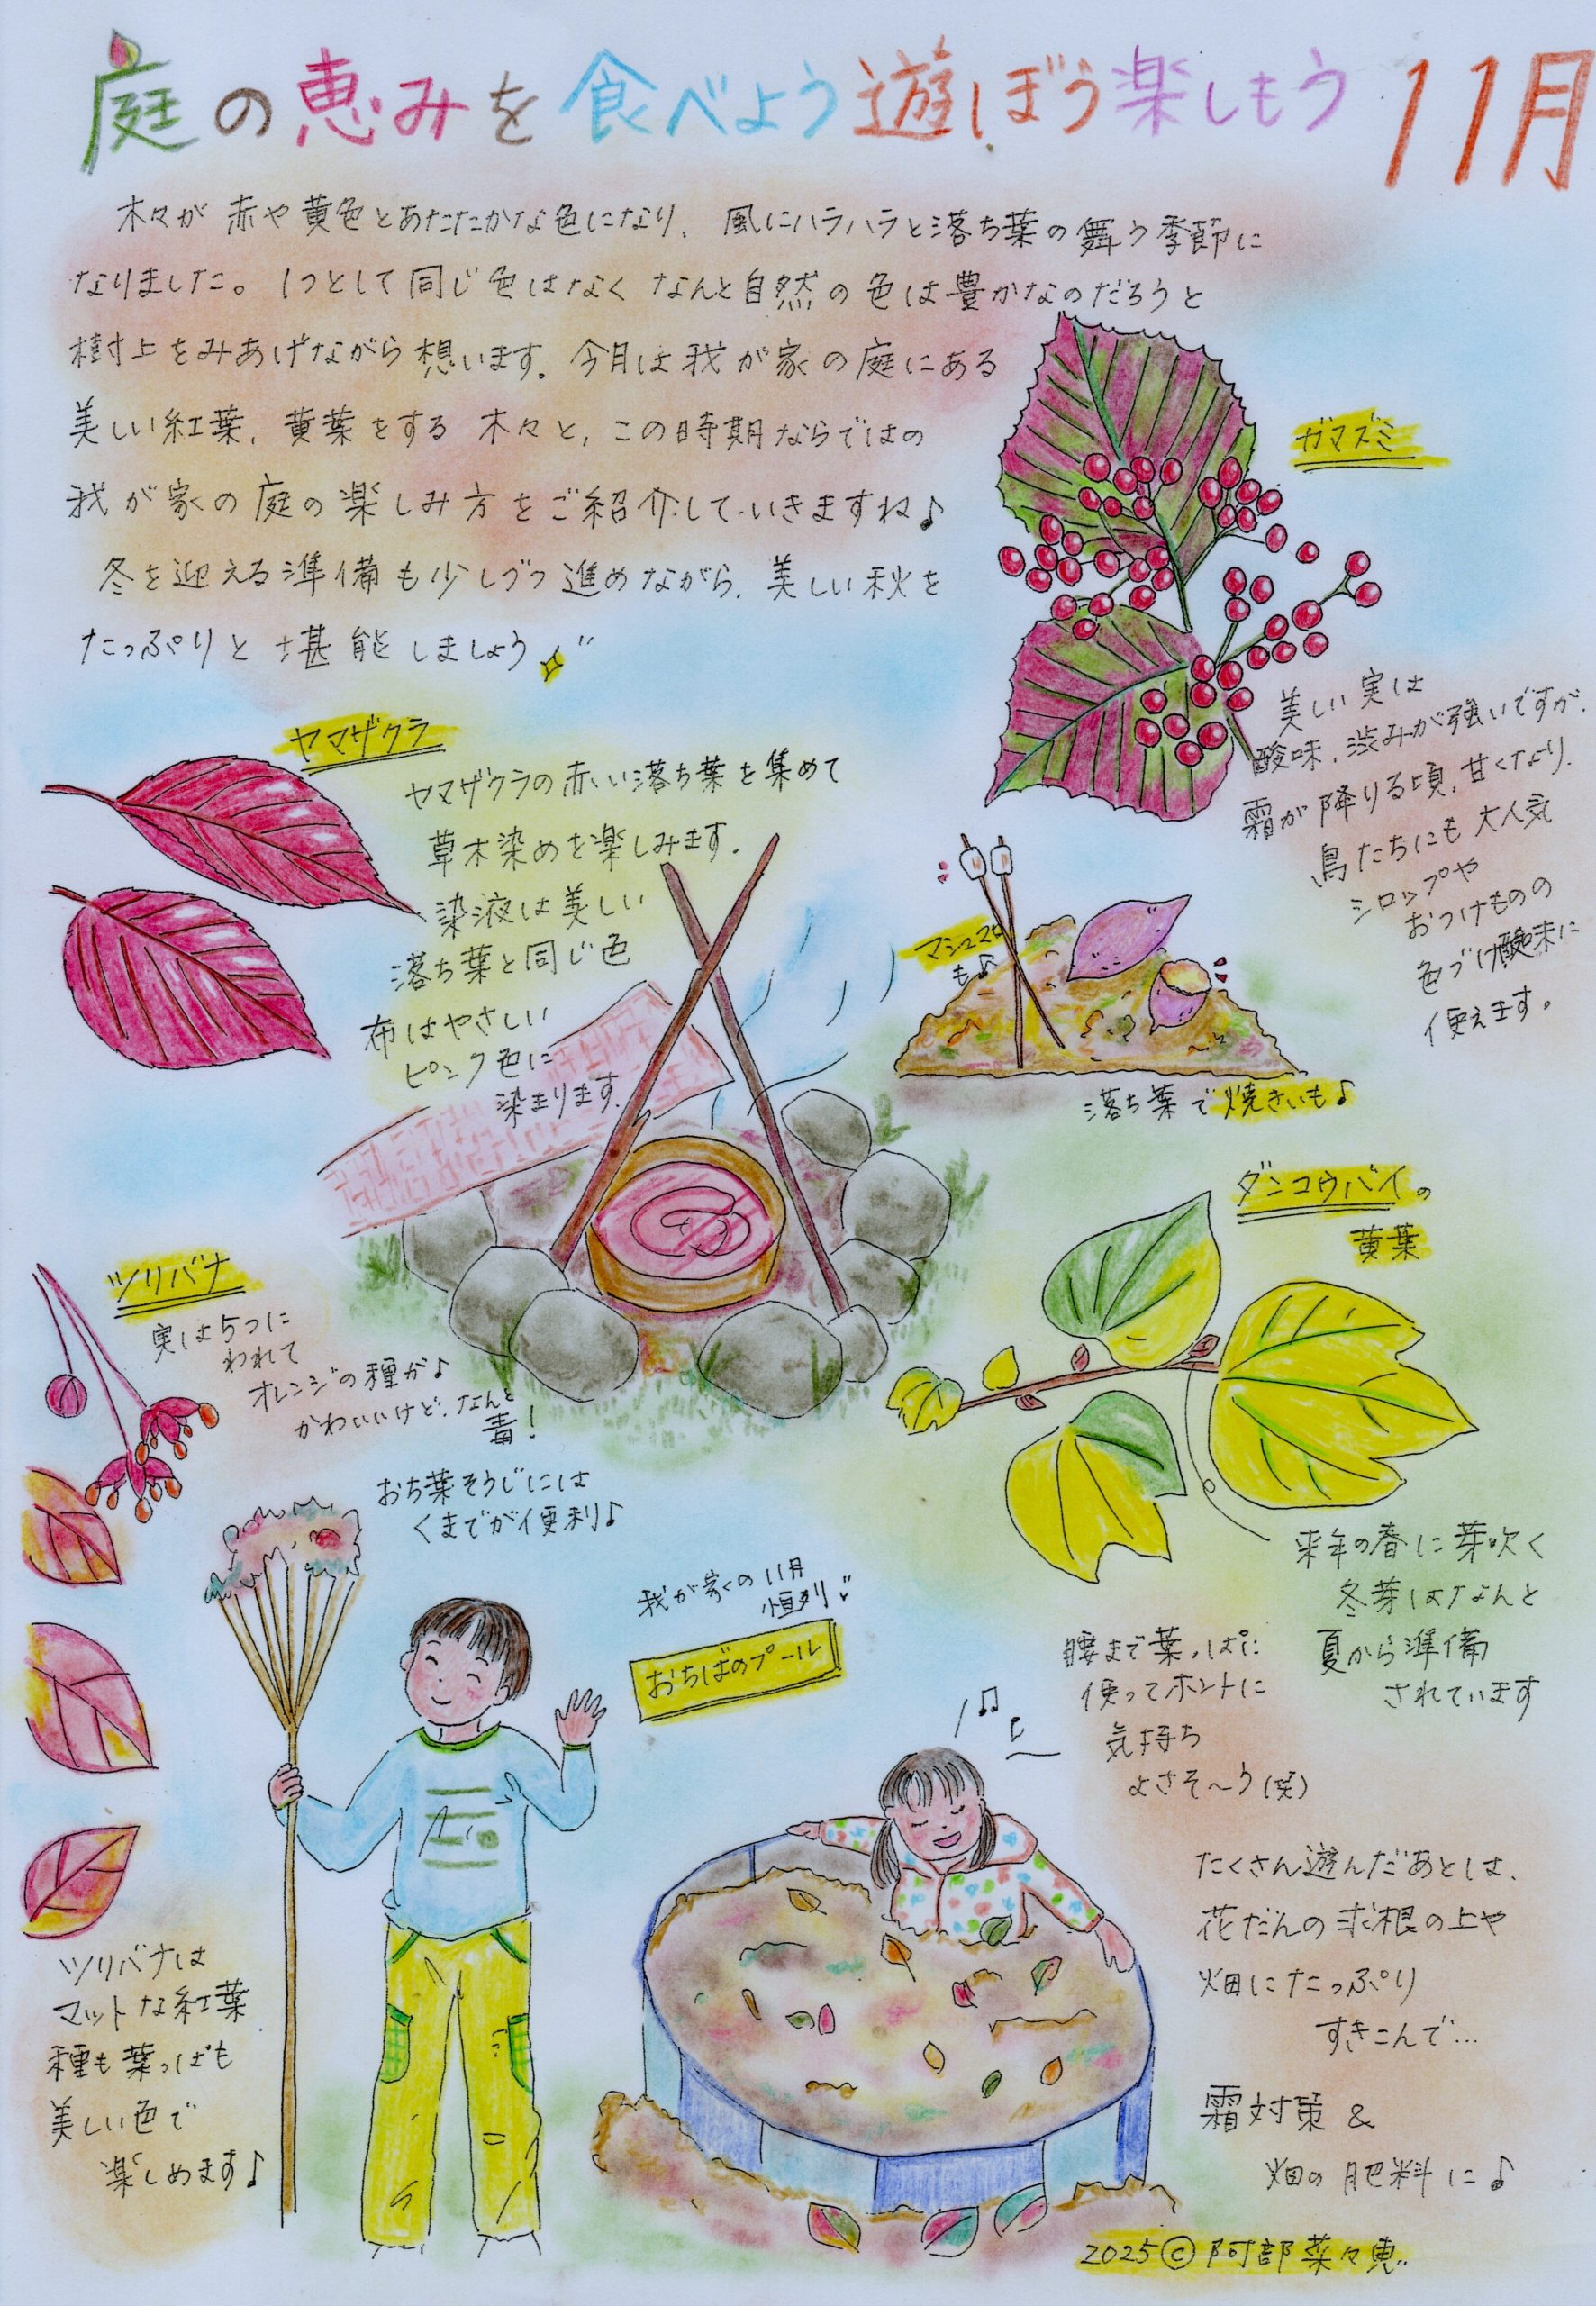 庭の恵みを食べよう遊ぼう楽しもう 11月
木々が赤や黄色とあたたかな色になり、風にハラハラと落ち葉の舞う季節に
なりました。1つとして同じ色はなく なんと自然の色は豊かなのだろうと
樹上をみあげながら想います。今月は我が家の庭にある
美しい紅葉、黄葉をする木々と、この時期ならではの
我が家の庭の楽しみ方をご紹介していきますね♪
冬を迎える準備も少しづつ進めながら、美しい秋を
たっぷりと堪能しましょう
ガマズミ
美しい実は
酸味、渋みが強いですが、
霜が降りる頃、甘くなり、
鳥たちにも大人気
シロップや
おつけものの
色づけ酸味に
使えます。
ヤマザクラ
ヤマザクラの赤い落ち葉を集めて
草木染めを楽しみます。
染液は美しい
落ち葉と同じ色
布はやさしい
ピンク色に
染まります。
マシュマロ
も♪
落ち葉で焼きいも♪
ダンコウバイの
黄葉
来年の春に芽吹く
冬芽はなんと
夏から準備
されています
ツリバナ
実は5つに
われて
オレンジの種が♪
かわいいけど、なんと
毒!
おち葉そうじには
くまでが便利♪
我が家の11月
恒例
おちばのプール
腰まで葉っぱに
使ってホントに
気持ち
よさそ〜う(笑)
たくさん遊んだあとは、
花だんの球根の上や
畑にたっぷり
すきこんで…
霜対策 &
畑の肥料に♪
ツリバナは
マットな紅葉
種も葉っぱも
美しい色で
楽しめます♪
2025©阿部菜々恵